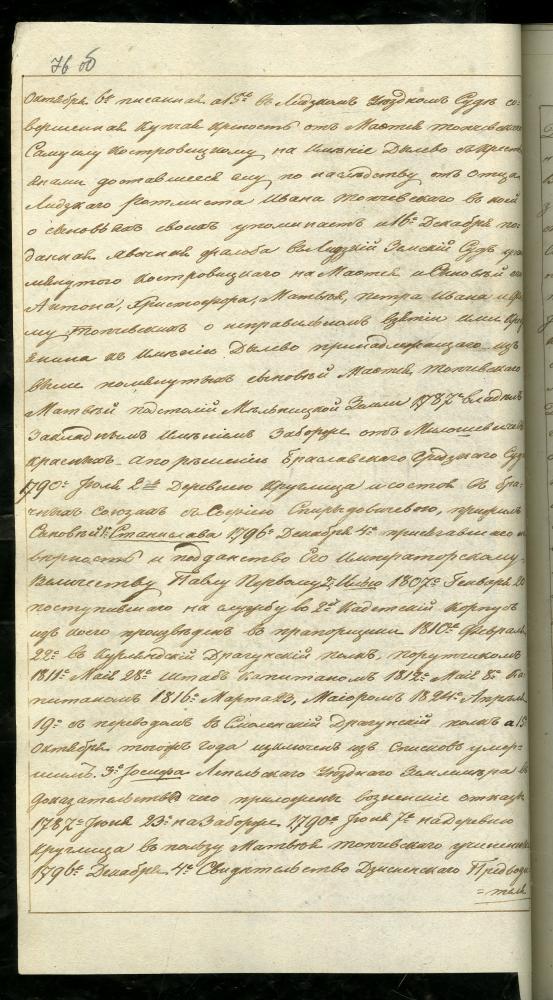 76 об
Октября 6го писанная а 15го въ Лидзкомъ Уѣздномъ Судѣ со-
вершенная купчая крепость отъ Матвея Топчевскаго
Самуилу Костровицкому на имѣніе Дылево съ крестя
янами доставшееся ему по наслѣдству отъ отца
Лидзкаго Ротмистра Ивана Топчевскаго въ коей
о сыновьяхъ своихъ упоминаетъ и 16го Декабря по-
данная явочная жалоба въ Лидзкій Земскій Судъ упо
мянутого Костровицкаго на Матвея и Сыновей его
Антона, Христофора, Матвѣя, Петра Ивана и
му Топчевскихъ о неправильномъ взятіи ими кре
янина къ имѣнію Дылево принадлежащаго изъ
выше помянутыхъ сыновей Матвея Топчевскаго
Матвей Подстолій Мѣльницкой Земли 1787го владѣлъ
Закладнымъ имѣніемъ Заборье отъ
Красныхъ а по рѣшенію Браславскаго Суд
1790го Іюля 2го Деревнею Круглица и состоя въ бра-
чныхъ союзахъ съ Софіею Спирыдовичевою, прижилъ
Сыновей 1е Станислава 1796го Декабря 4го присягавшаго на
вѣрность и подданство Его Императорскому
Величеству Павлу Первому 2, Илью 1807го Генваря 20
поступившаго на службу во 2й Кадетскій Корпусъ
изъ коего произведенъ въ прапорщики 1810го Февраля
22го въ Курляндскій Драгунскій полкъ, порутчикомъ
1811го Маія 28го Штабъ Капитаномъ 1812го Маія 8го Ка
питаномъ 1816го Марта 23, Маіоромъ 1824го Апрѣля
19го съ переводомъ въ Смоленскій Драгунскій полкъ а 15
Октября тогожъ года изключенъ изъ Списковъ умер-
шимъ. 3е Іосифа Лепельскаго Уѣзднаго Землемѣра въ
доказательствѣ чего приложены возненіе отказа
1787го Іюня 23го на Заборье 1790го Іюля 7го на деревню
Круглица въ пользу Матвѣя Топчевскаго учиненныя
1796го Декабря 4го Свидѣтельство Дзисненскаго Предводи
=теля